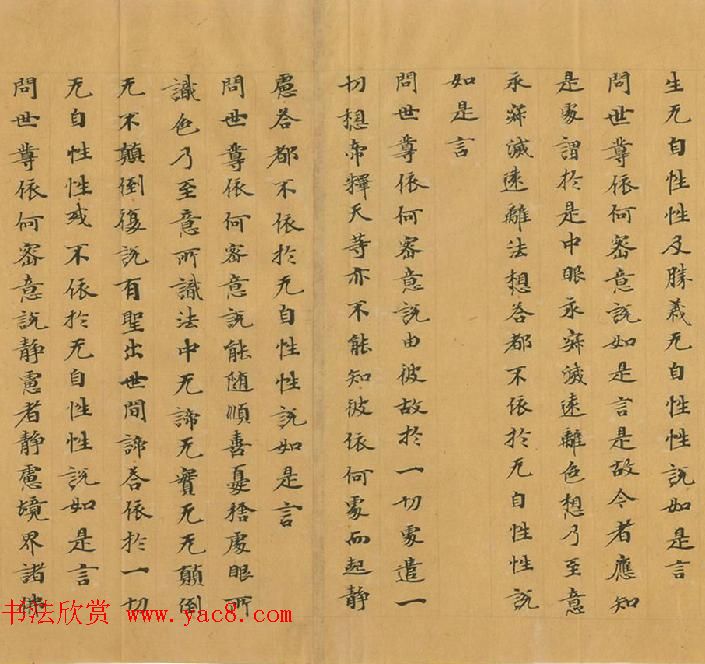 生无自性性及勝義无自性性說如是言
問世尊依何審意說如是言是故今者應知
是處謂於是中眼永寂滅遠離色想乃至意
永寂滅遠離法想荅都不依於无自性性說
如是言
問世尊依何審意說由彼故於一切處遣一
切想帝釋天等亦不能知彼依何處而起靜
慮荅都不依於无自性性說如是言
問世尊依何審意說能随順喜憂捨處眼所
識色乃至意所識法中无諦无實无无顛倒
无不顛倒復說有聖出世間諦荅依於一切
无自性性或不依於无自性性說如是言
問世尊依何審意說靜慮者靜慮境界諸佛
书法欣赏 www.yac8.com